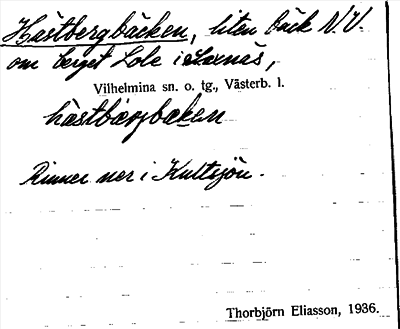 Hästbergbäcken, liten bäck N.V.
om berget Lole i Saxnäs,
Vilhelmina sn. o. tg., Västerb. l.
hàstbárjbæken
Rinner ner i Kultsjön.
Thorbjörn Eliasson, 1936.